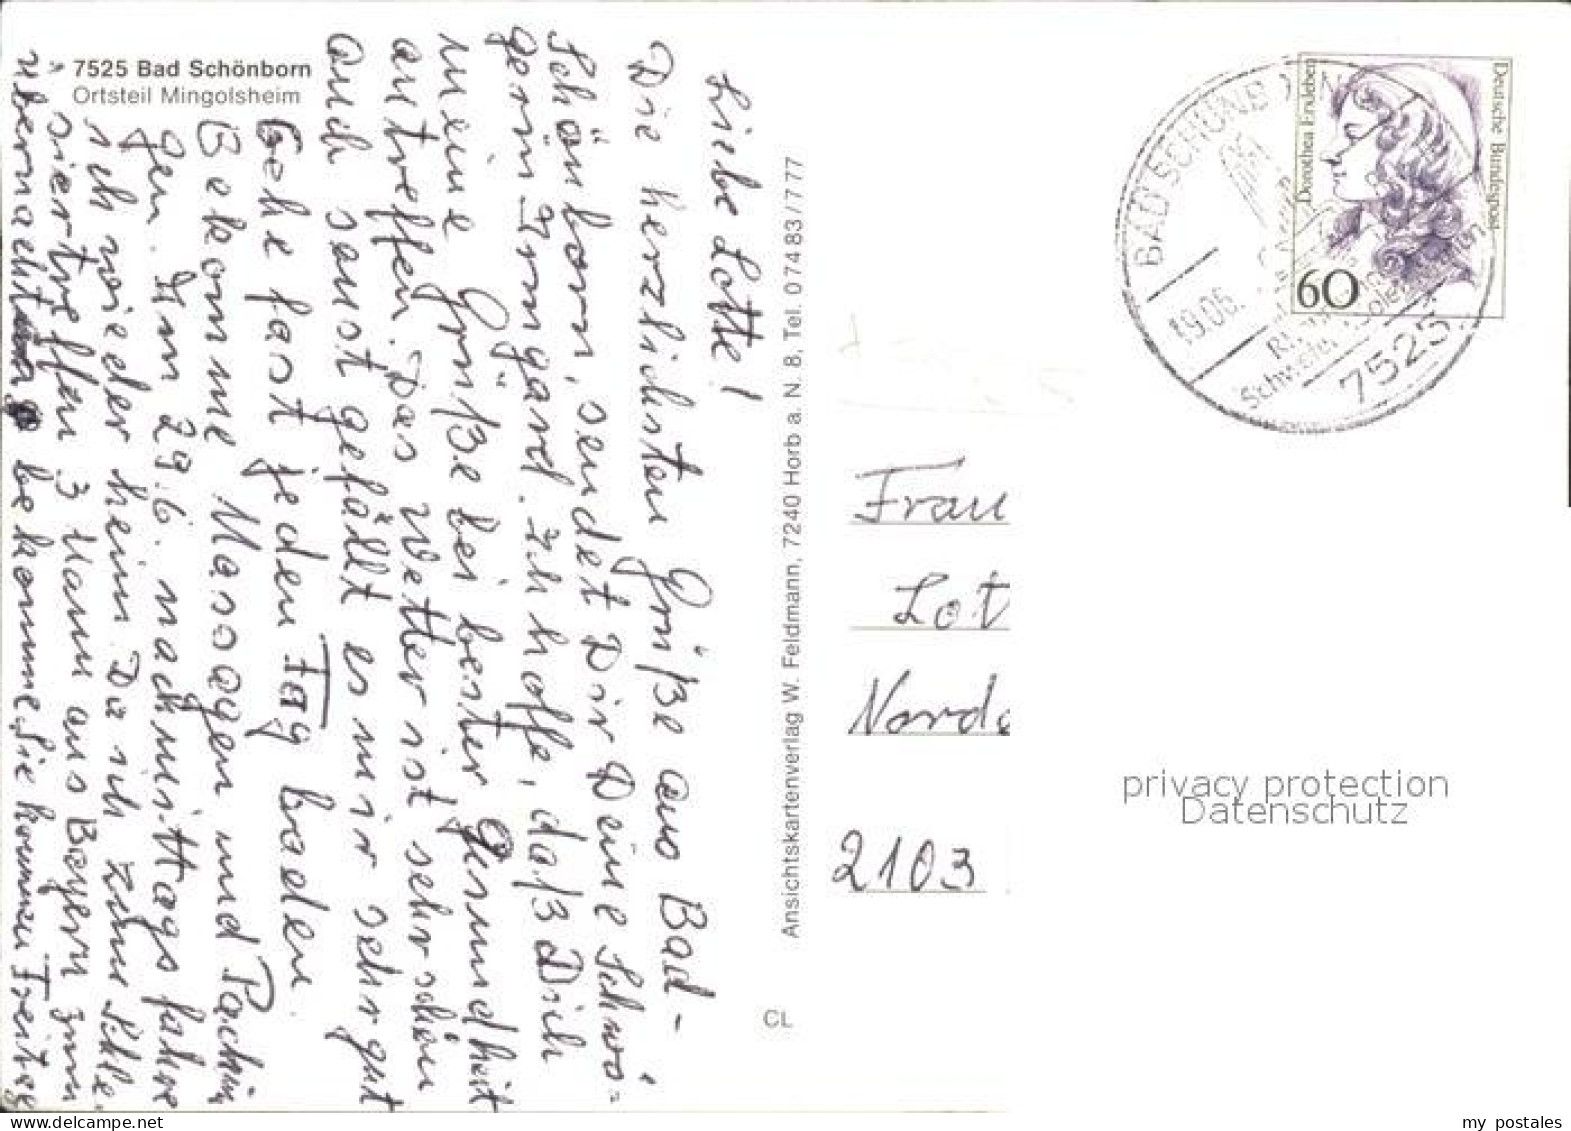 7525 Bad Schönborn
Ortsteil Mingolsheim
Liebe Lotte!
Die herzlichsten Grüße aus Bad-
Schönborn, sendet Dir Deine Schwä=
gerin Irmgard. Ich hoffe, daß Dich
meine Grüße bei bester Gesundheit
antreffen. Das Wetter ist sehr schön
auch sonst gefällt es mir sehr gut
Gehe fast jeden Tag baden.
Bekomme Massagen und
gen. Am 29.6. nachmittags fahre
ich wieder heim. Da ich zum
3 Mann aus Bayern zum
bekomme, Sie kommen Freitag
Ansichtskartenverlag W. Feldmann, 7240 Horb a. N. 8, Tel. 07483/777
CL
Deutsche Bundespost
Dorothea Erxleben
60
BAD SCHÖNBORN
19.06.
7525
Frau
Lot
Norde
2103
privacy protection
Datenschutz
delcampe.net
my_postales